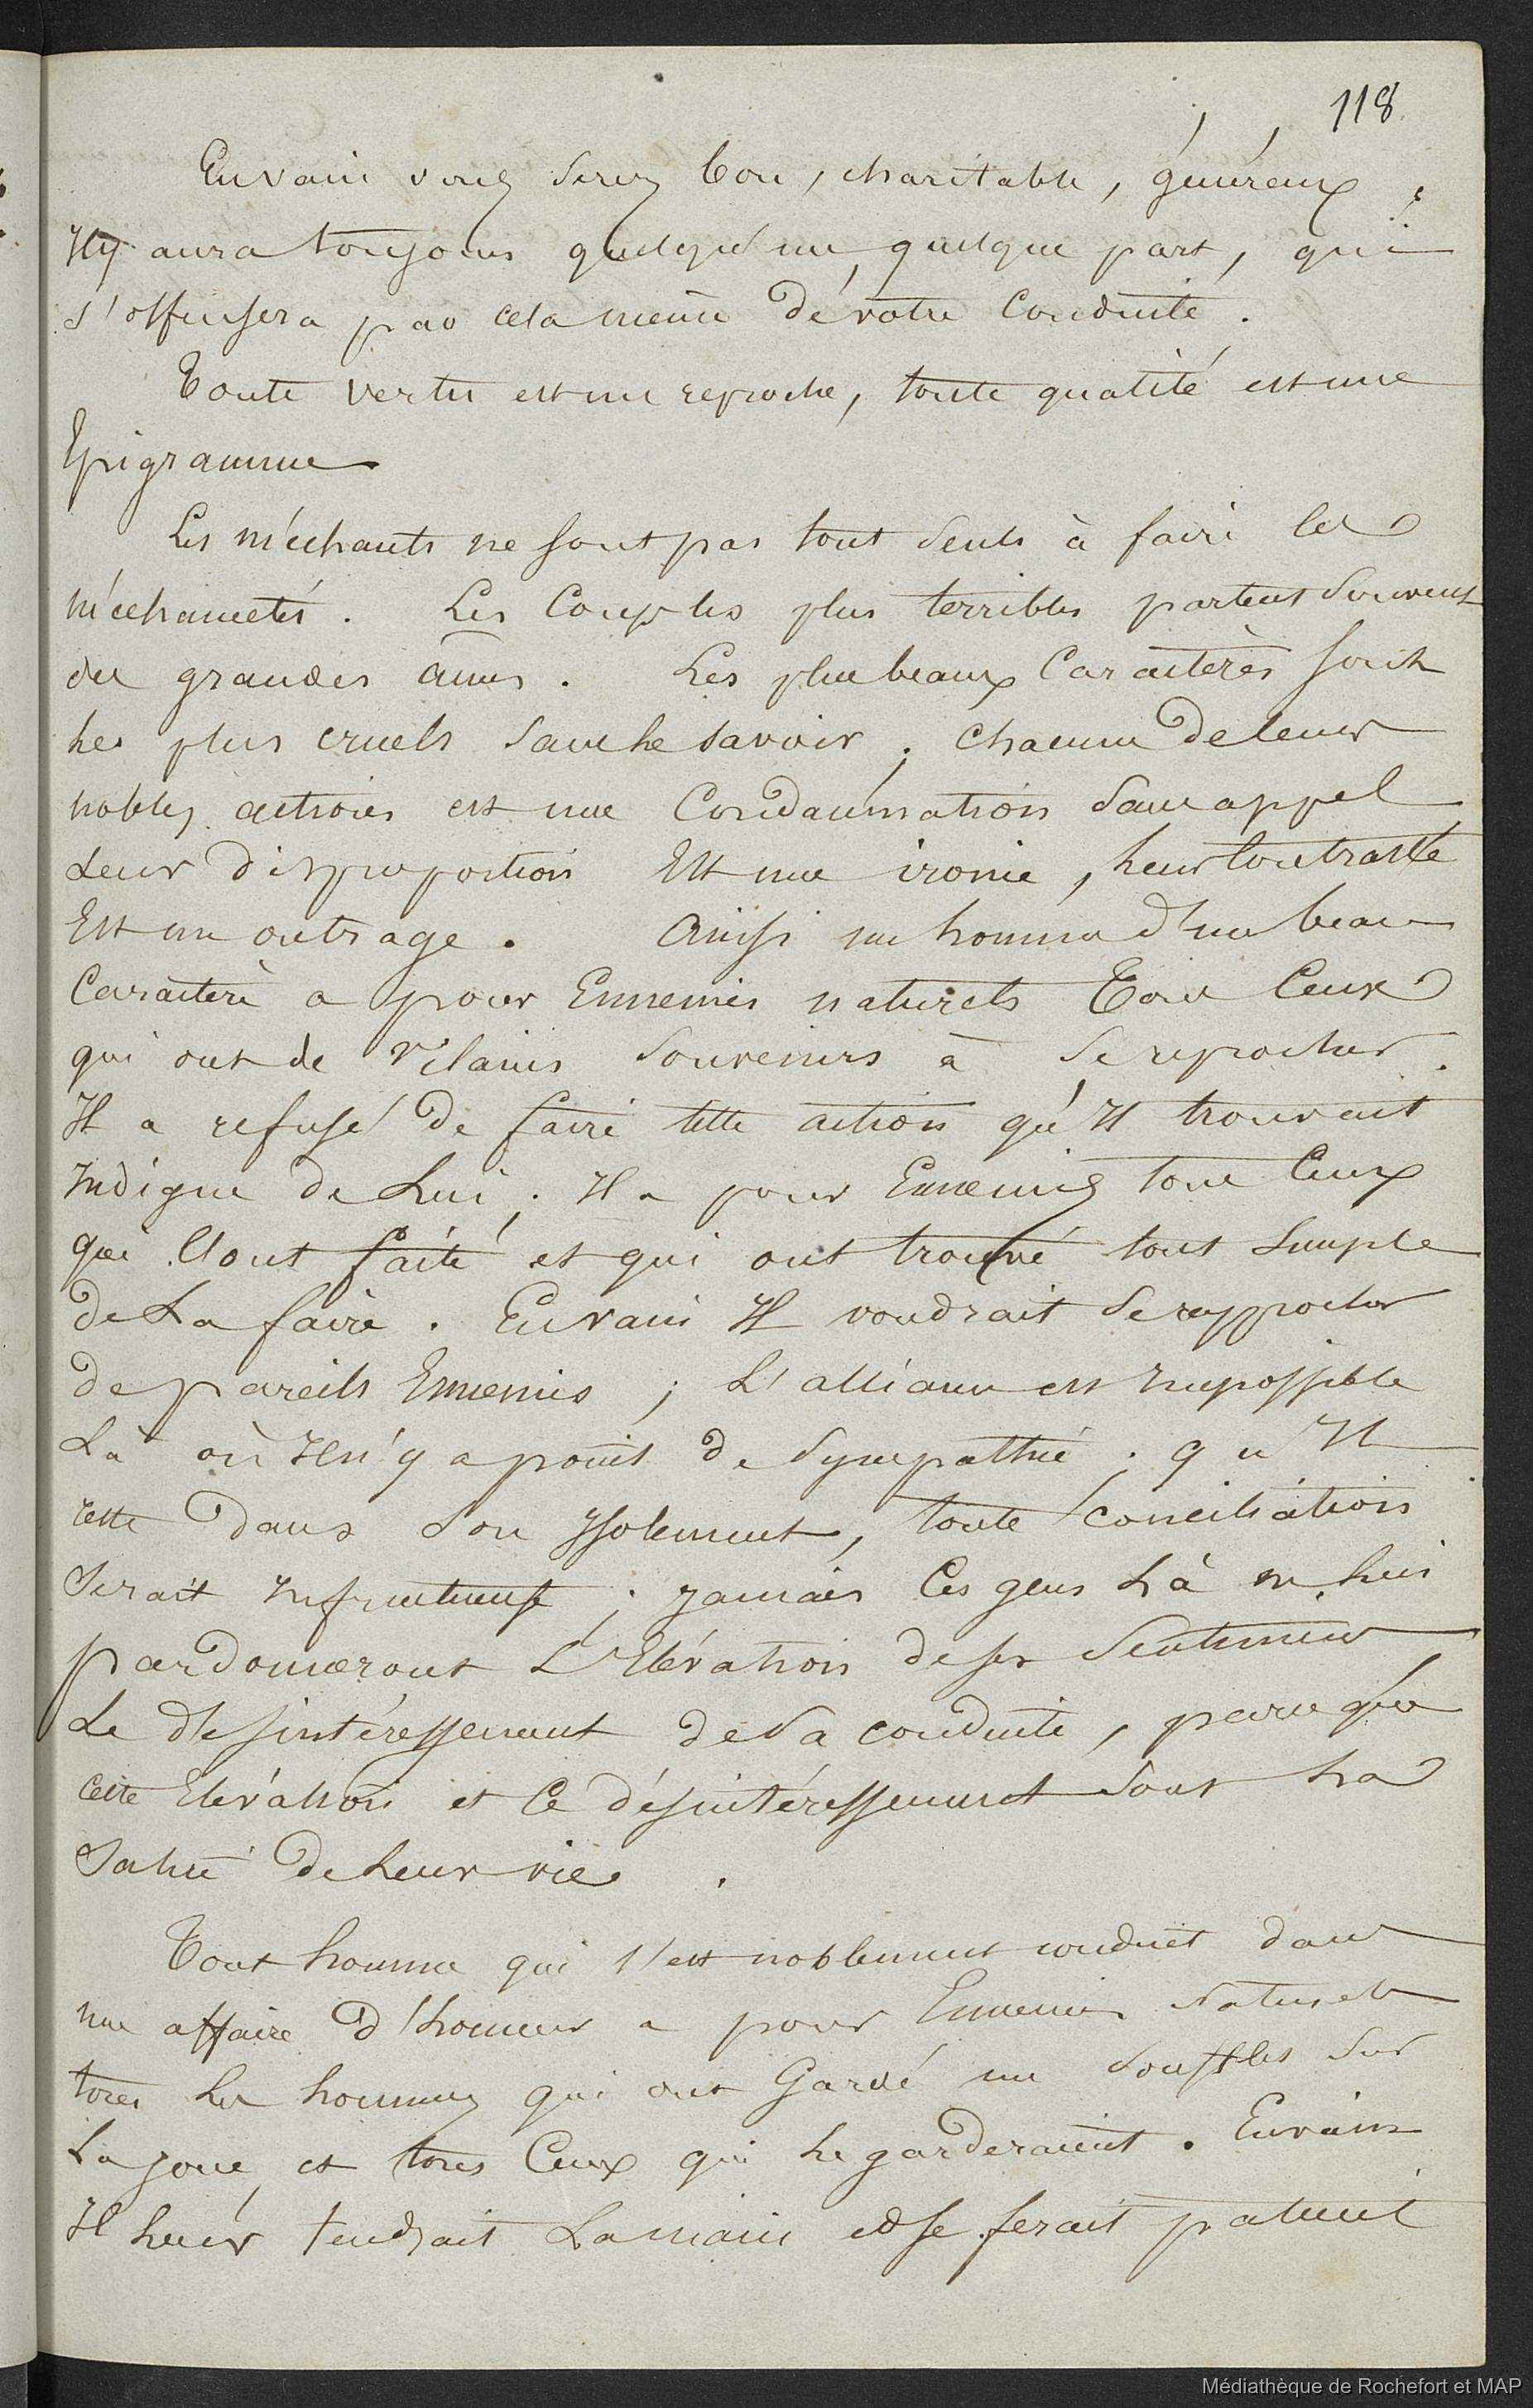 118
En vain vous serez bon, charitable, généreux ;
Il y aura toujours quelqu'un, quelque part, qui
s'offensera par cela même de votre conduite.
Toute vertu est un reproche, toute qualité est une
Epigramme
Les méchants ne sont pas tout seuls à faire les
méchancetés. Les coups les plus terribles partent souvent
des grandes âmes. Les plus beaux caractères sont
les plus cruels sans le savoir ; chacune de leurs
nobles actions est une condamnation sans appel
Leur disproportion Est une ironie, leur contraste
Est un outrage. Ainsi un homme d'un beau
Caractère a pour Ennemis naturels Tous Ceux
qui ont de vilains souvenirs à se reprocher.
Il a refusé de faire telle action qu'Il trouvait
Indigne de Lui ; Il a pour Ennemis tous Ceux
qui l'ont faite et qui ont trouvé tout simple
de La faire. En vain Il voudrait se rapprocher
de pareils Ennemis ; L'alliance est Impossible
Là où Il n'y a point de Sympathie ; qu'Il
reste dans son Isolement, toute conciliation
serait Infructueuse ; jamais Ces gens là ne lui
pardonneront L'Elévation de ses sentiments
Le désintéressement de sa conduite, parce que
Cette Elévation et Ce désintéressement sont La
Satire de Leur vie.
Tout homme qui s'est noblement conduit dans
une affaire d'honneur a pour Ennemis naturels
tous les hommes qui ont Gardé un soufflet sur
La joue, et tous Ceux qui le garderaient. En vain
Il leur tendrait La main et se ferait patient
Médiathèque de Rochefort et MAP